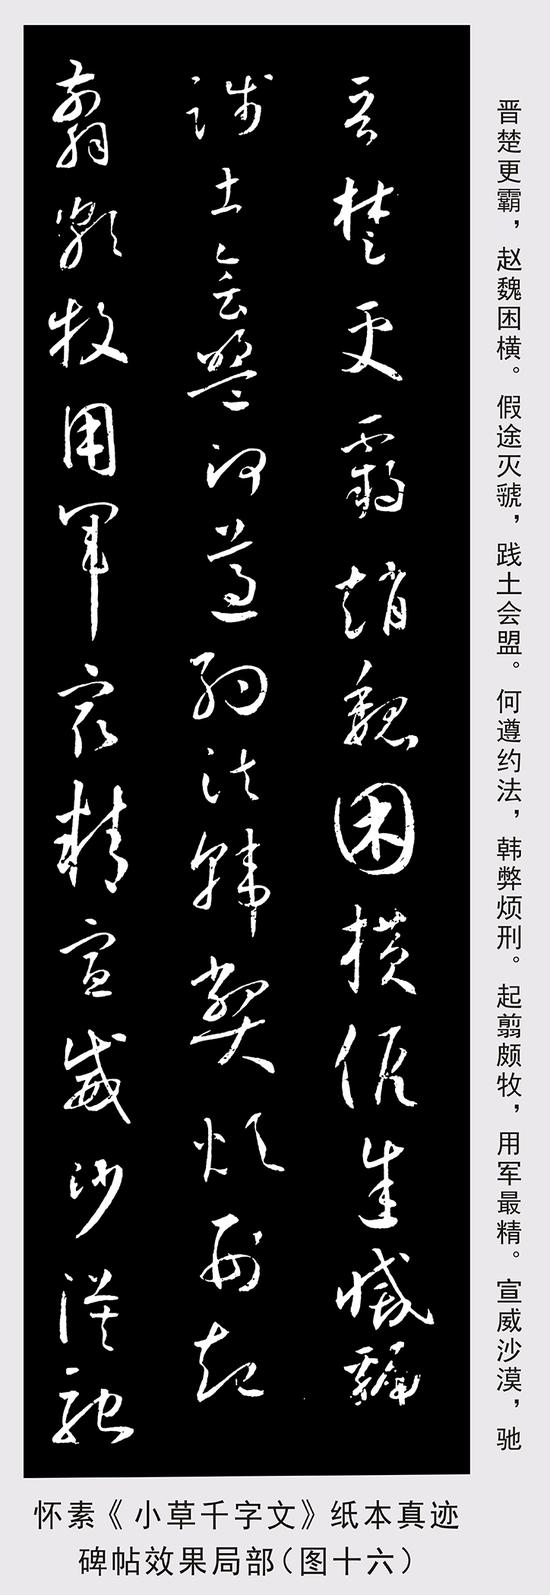 晋楚更霸，赵魏困横。假途灭虢，践土会盟。何遵约法，韩弊烦刑。起翦颇牧，用军最精。宣威沙漠，驰
晋楚更霸趙魏困横假途滅虢
践土会盟何遵約法韓弊煩刑起
翦頗牧用軍最精宣威沙漠馳
怀素《小草千字文》纸本真迹
碑帖效果局部（图十六）